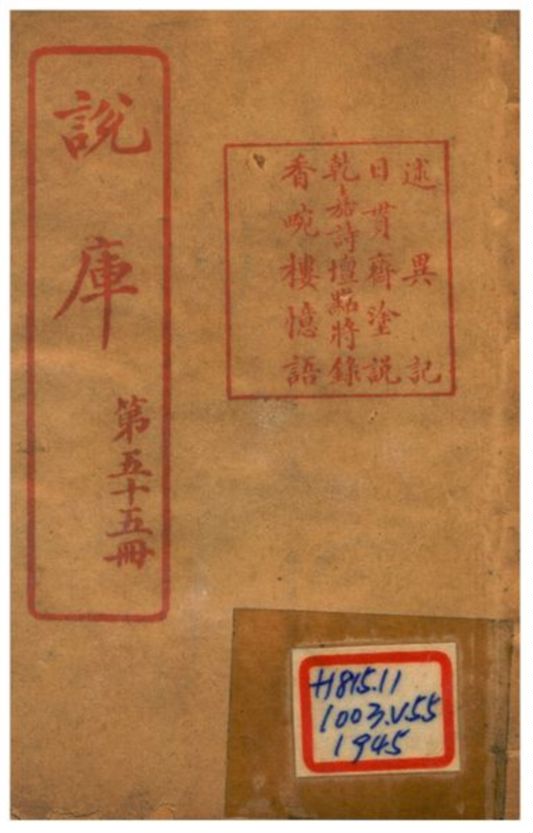 說庫
第五十五冊
述異記
日貫齋塗說
乾嘉詩壇點將錄
香畹樓憶語
H815.11
1003.V55
1945